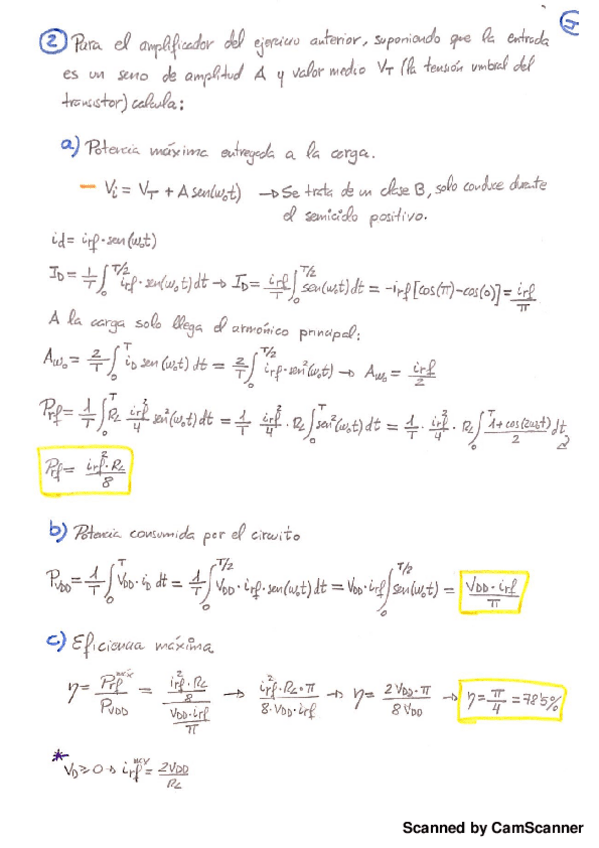 ② Para el amplificador del ejercicio anterior, suponiendo que la entrada
es un seno de amplitud A y valor medio V_T (la tensión umbral del
transistor) calcula:
a) Potencia máxima entregada a la carga.
— Vi = V_T + A sen(ω₀t) → Se trata de un clase B, solo conduce durante
el semiciclo positivo.
id = irf · sen(ω₀t)
I_D = 1/T ∫₀^{T/2} irf · sen(ω₀t) dt → I_D = irf/T ∫₀^{T/2} sen(ω₀t) dt = -irf [cos(π) - cos(0)] = irf/π
A la carga solo llega el armónico principal:
Aω₀ = 2/T ∫₀^T i_D sen(ω₀t) dt = 2/T ∫₀^{T/2} irf · sen²(ω₀t) → Aω₀ = irf/2
Prf = 1/T ∫₀^T R_L irf²/4 sen²(ω₀t) dt = 1/T irf²/4 · R_L ∫₀^T sen²(ω₀t) dt = 1/T · irf²/4 · R_L ∫₀^T 1+cos(2ω₀t)/2 dt
Prf = irf² · R_L/8
b) Potencia consumida por el circuito
P_VDD = 1/T ∫₀^T V_DD · i_D dt = 1/T ∫₀^{T/2} V_DD · irf · sen(ω₀t) dt = V_DD · irf ∫₀^{T/2} sen(ω₀t) = V_DD · irf/π
c) Eficiencia máxima
η = Prf^máx/P_VDD = (irf² · R_L/8)/(V_DD · irf/π) → irf² · R_L · π/8 · V_DD · irf → η = 2V_DD · π/8V_DD → η = π/4 = 78'5%
* V_D ≥ 0 → irf^máx = 2V_DD/R_L
Scanned by CamScanner